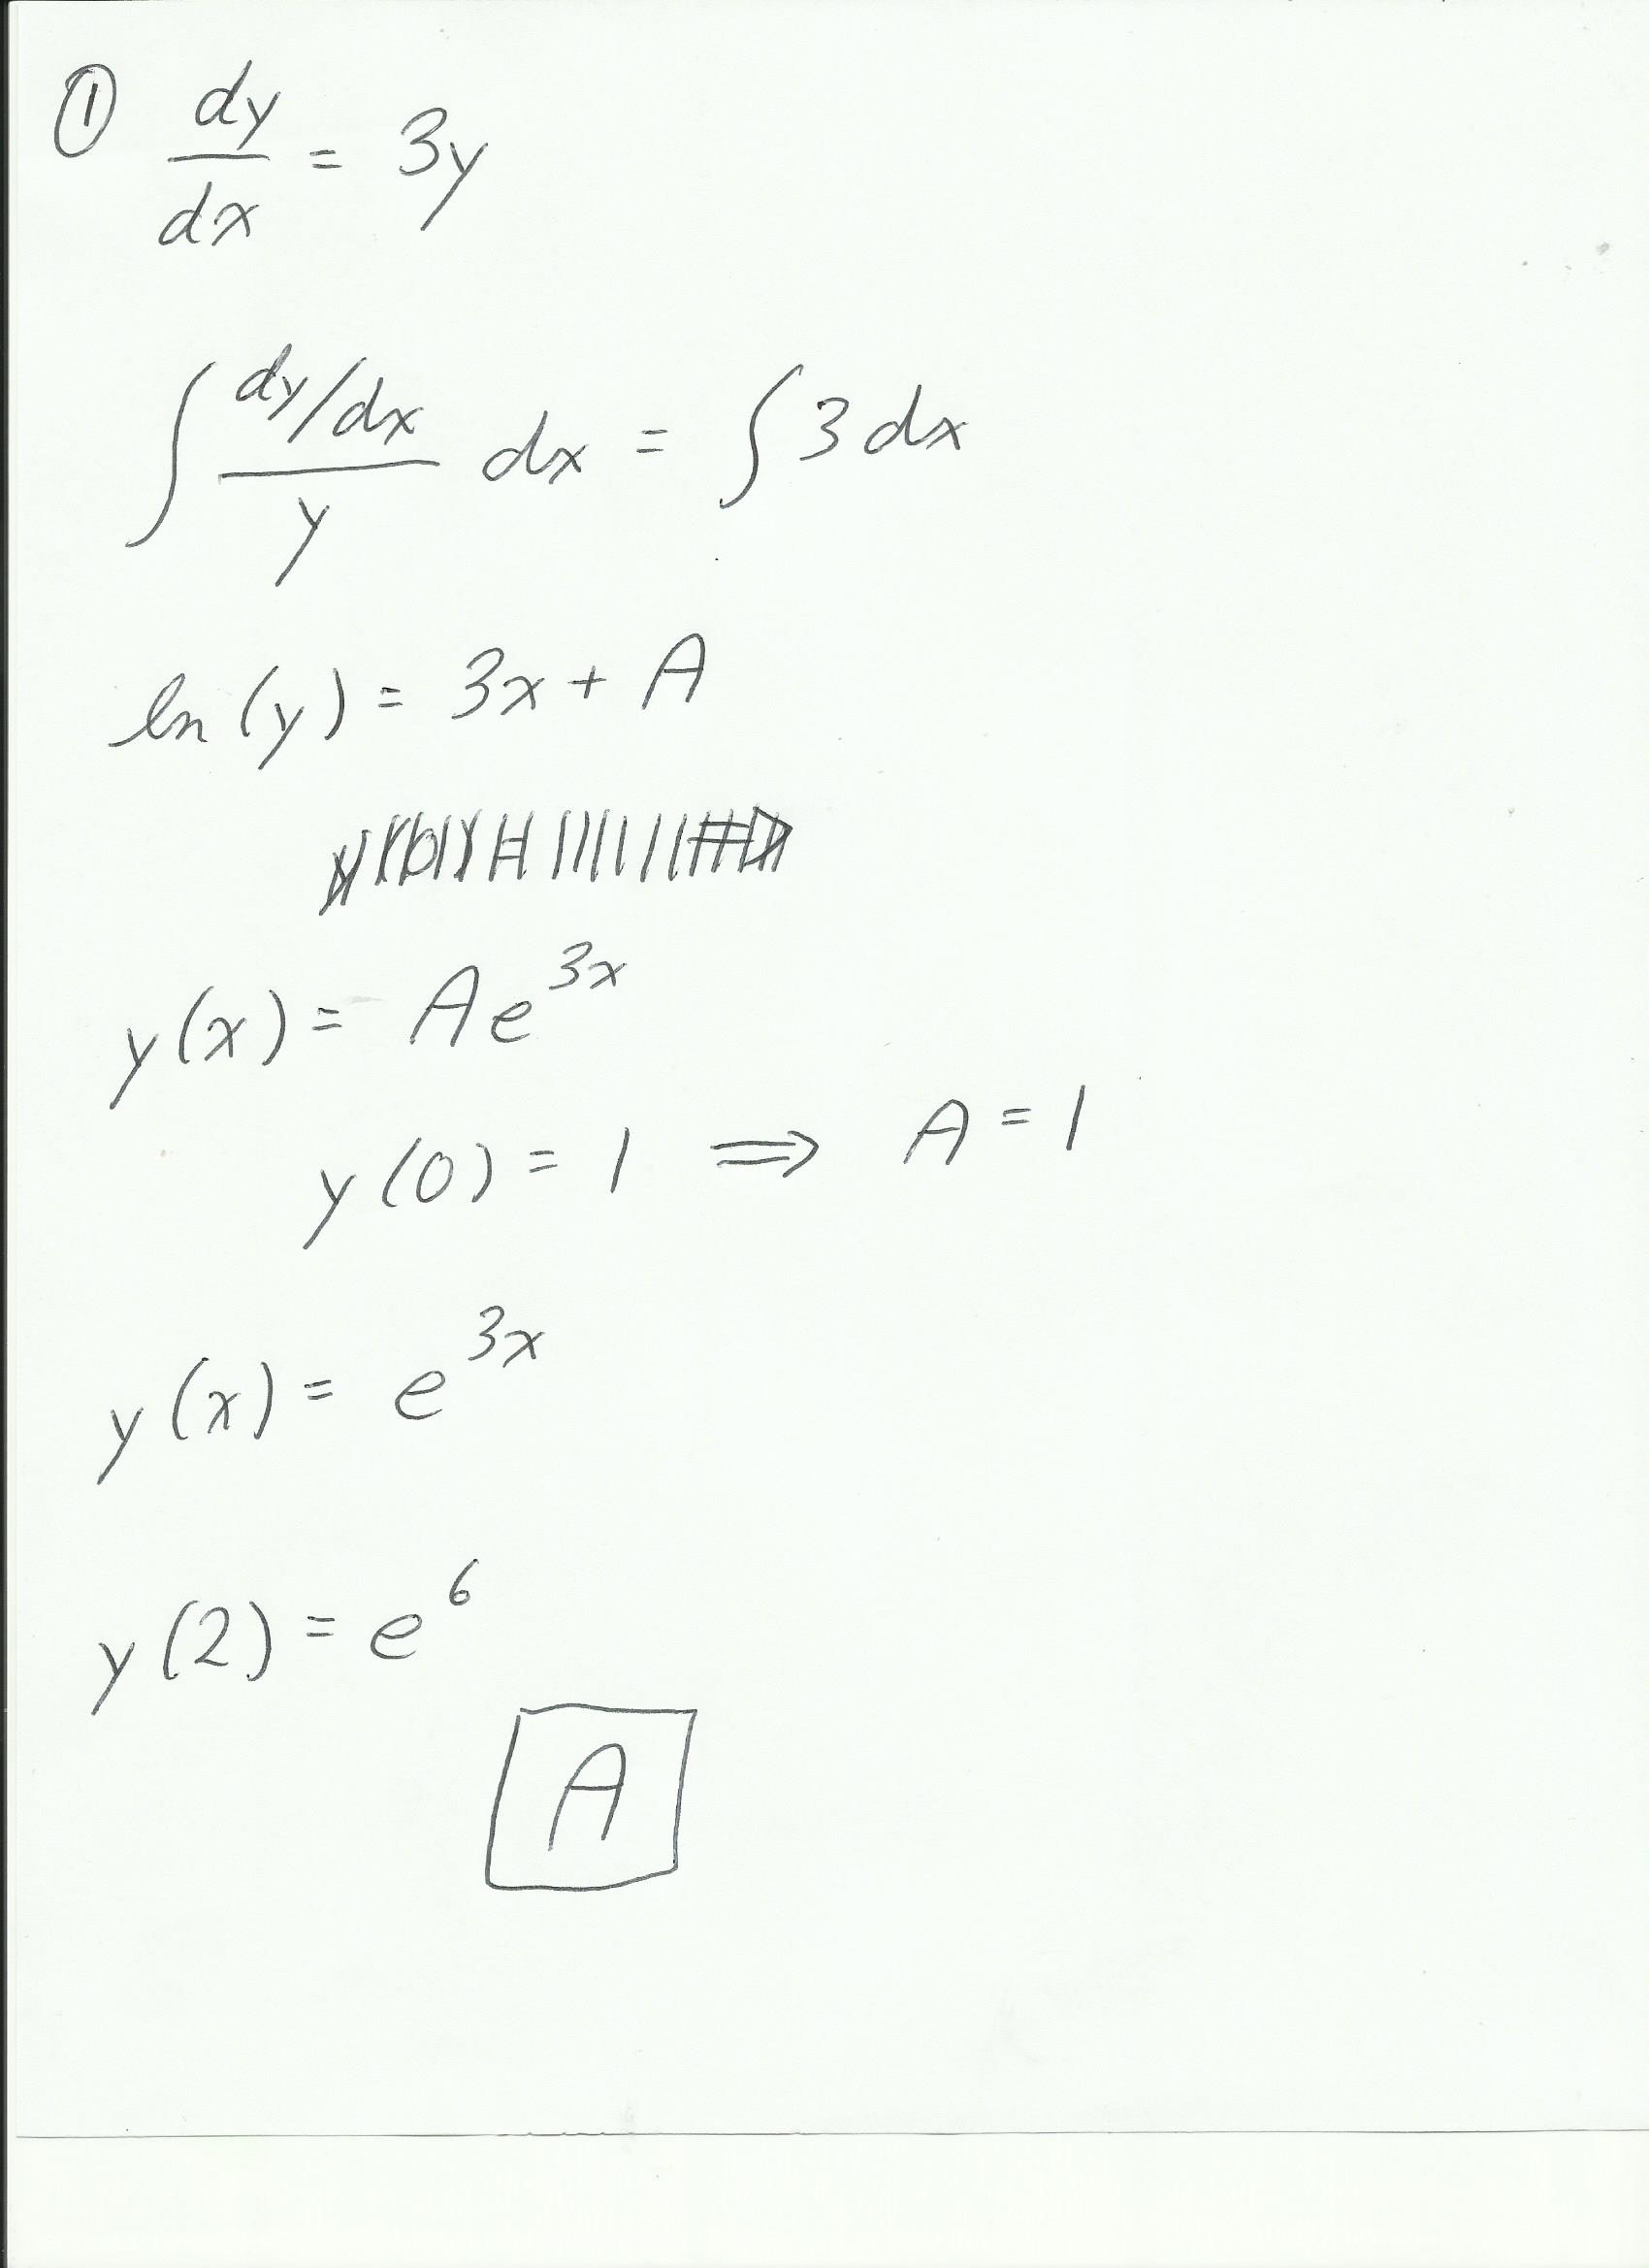 ① dy/dx = 3y
∫ (dy/dx)/y dx = ∫ 3 dx
ln(y) = 3x + A
y(x) = Ae^3x
y(0) = 1 ⇒ A = 1
y(x) = e^3x
y(2) = e^6
A